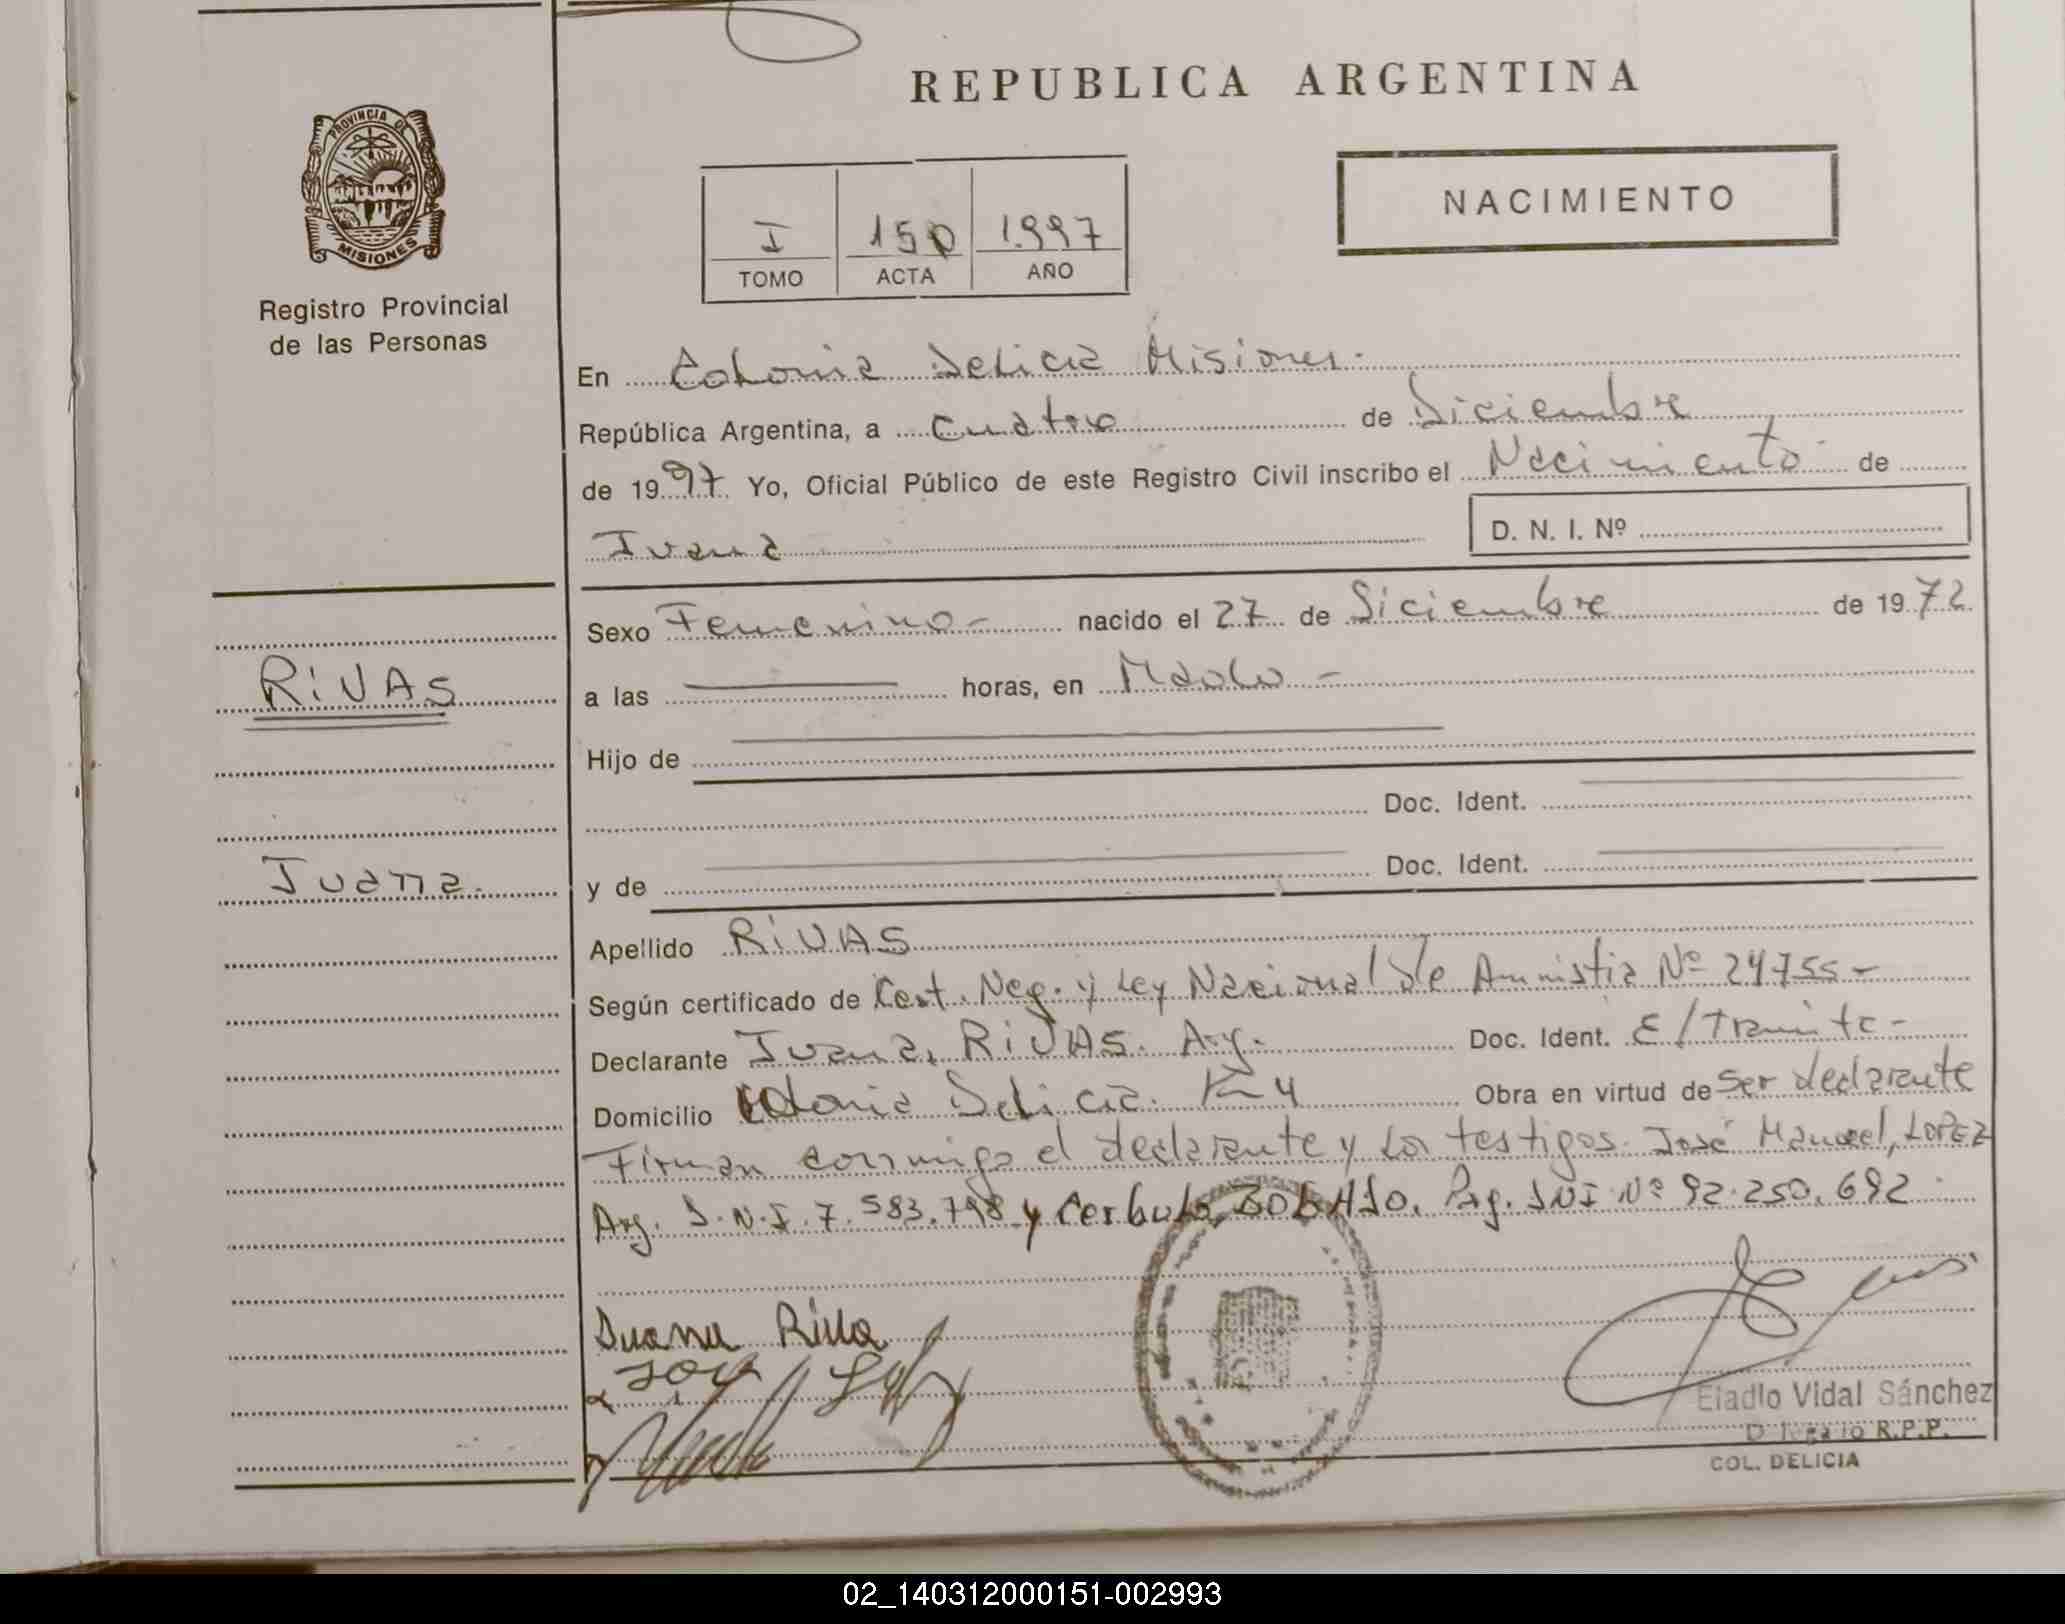 REPUBLICA ARGENTINA
PROVINCIA DE
MISIONES
Registro Provincial
de las Personas
I 150 1.997
TOMO ACTA AÑO
NACIMIENTO
En Colonia Delicia Misiones.
República Argentina, a Cuatro de Diciembre
de 1997. Yo, Oficial Público de este Registro Civil inscribo el Nacimiento de
Juana
D. N. I. Nº
Sexo Femenino- nacido el 27 de Diciembre de 1972.
RIVAS
a las horas, en
Hijo de
Doc. Ident.
Juana.
y de Doc. Ident.
Apellido RIVAS
Según certificado de Cert. Neg. y Ley Nacional de Amnistia Nº 24755-
Declarante Juana, RIVAS. Arg. Doc. Ident. E/Tramite-
Domicilio Colonia Delicia. Obra en virtud de Ser declarante
Firman conmigo el declarante y los testigos. José Manuel, LOPEZ
Arg. D.N.I. 7.583.798 y DNI Nº 92.250.692
Juana
Eladio Vidal Sánchez
Delegado R.P.P.
COL. DELICIA
02_140312000151-002993